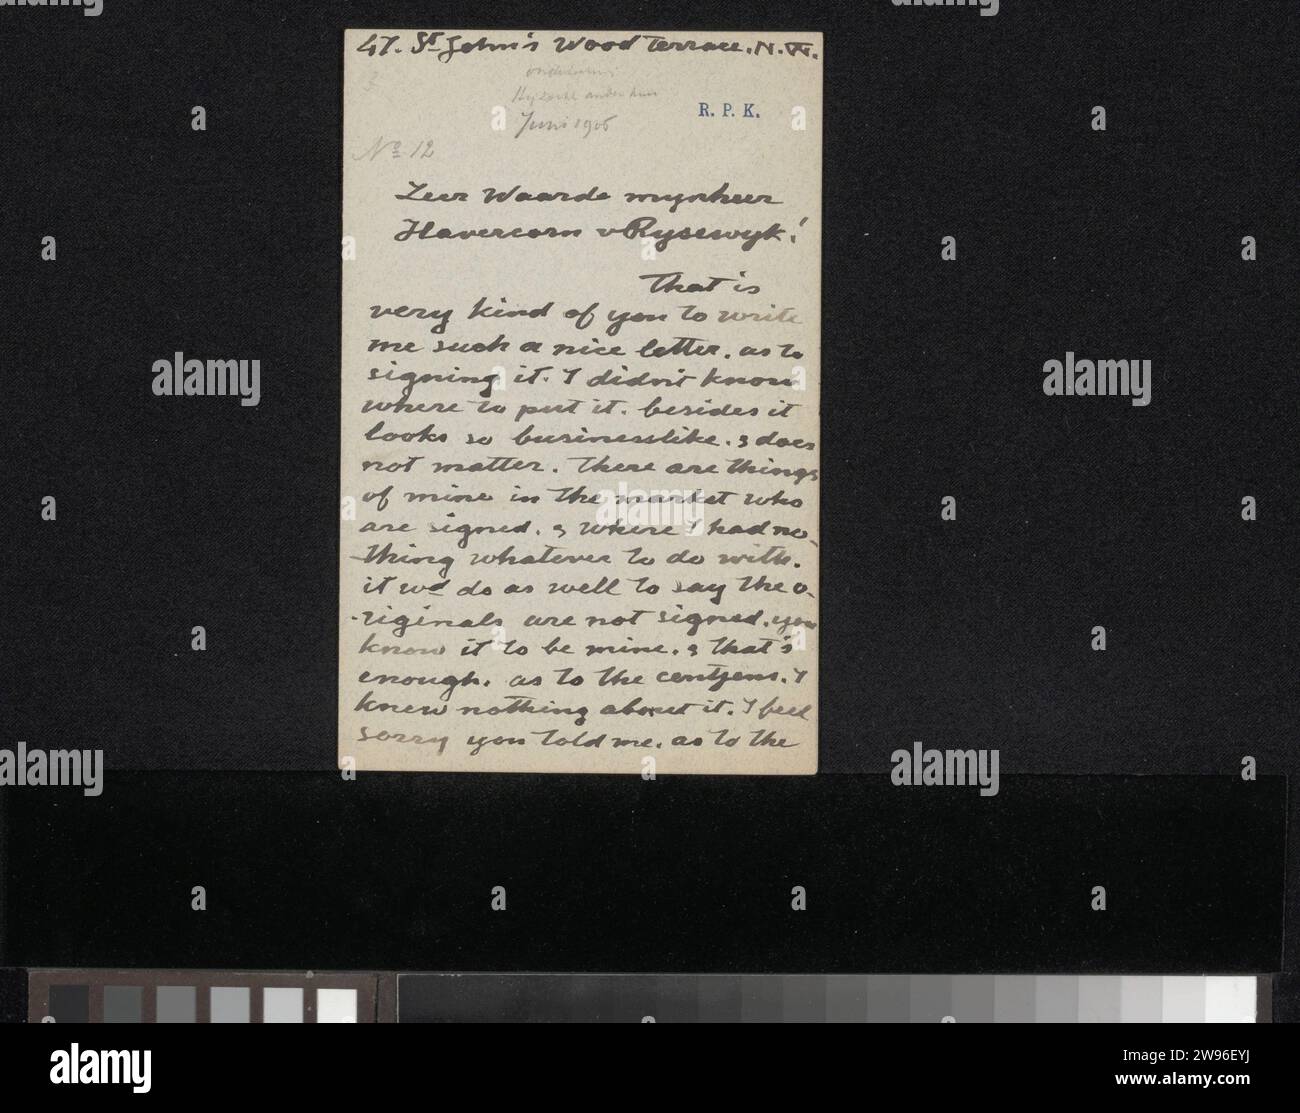 47. St John's Wood Terrace. N.W.
R. P. K.
Juni 1906
No 12
Zeer Waarde mynheer
Havercorn v Rysewyk!
That is
very kind of you to write
me such a nice letter. as to
signing it. I didn't know
where to put it. besides it
looks so businesslike. & does
not matter. There are things
of mine in the market who
are signed. & where I had no-
-thing whatever to do with.
it wd do as well to say the o-
-riginals are not signed. you
know it to be mine. & that's
enough. as to the centjens. I
knew nothing about it. I feel
sorry you told me. as to the
alamy
Image ID: 2W96EYJ
www.alamy.com